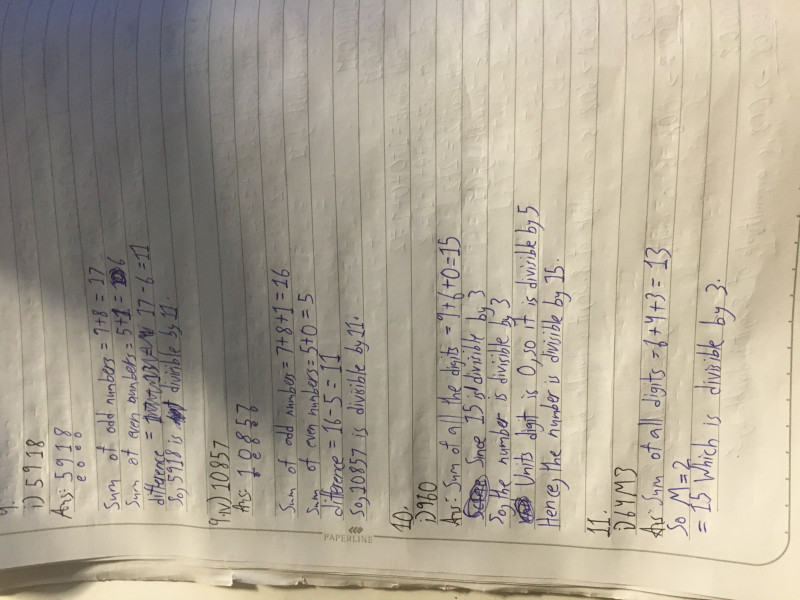 9.
i) 5918
Ans: 5918
e o e o
Sum of odd numbers = 9+8 = 17
Sum of even numbers = 5+1 = 6
difference = 17-6=11
So, 5918 is divisible by 11.
9.iv) 10857
Ans: 10857
o e o e o
Sum of odd numbers = 7+8+1=16
Sum of even numbers = 5+0=5
difference = 16-5=11
So, 10857 is divisible by 11.
10.
i) 960
Ans: Sum of all the digits = 9+6+0=15
Since 15 is divisible by 3
So, the number is divisible by 3
Units digit is 0, so it is divisible by 5
Hence, the number is divisible by 15.
11.
i) 64M3
Ans: Sum of all digits = 6+4+3=13
So M=2
= 15 Which is divisible by 3.
PAPERLINE